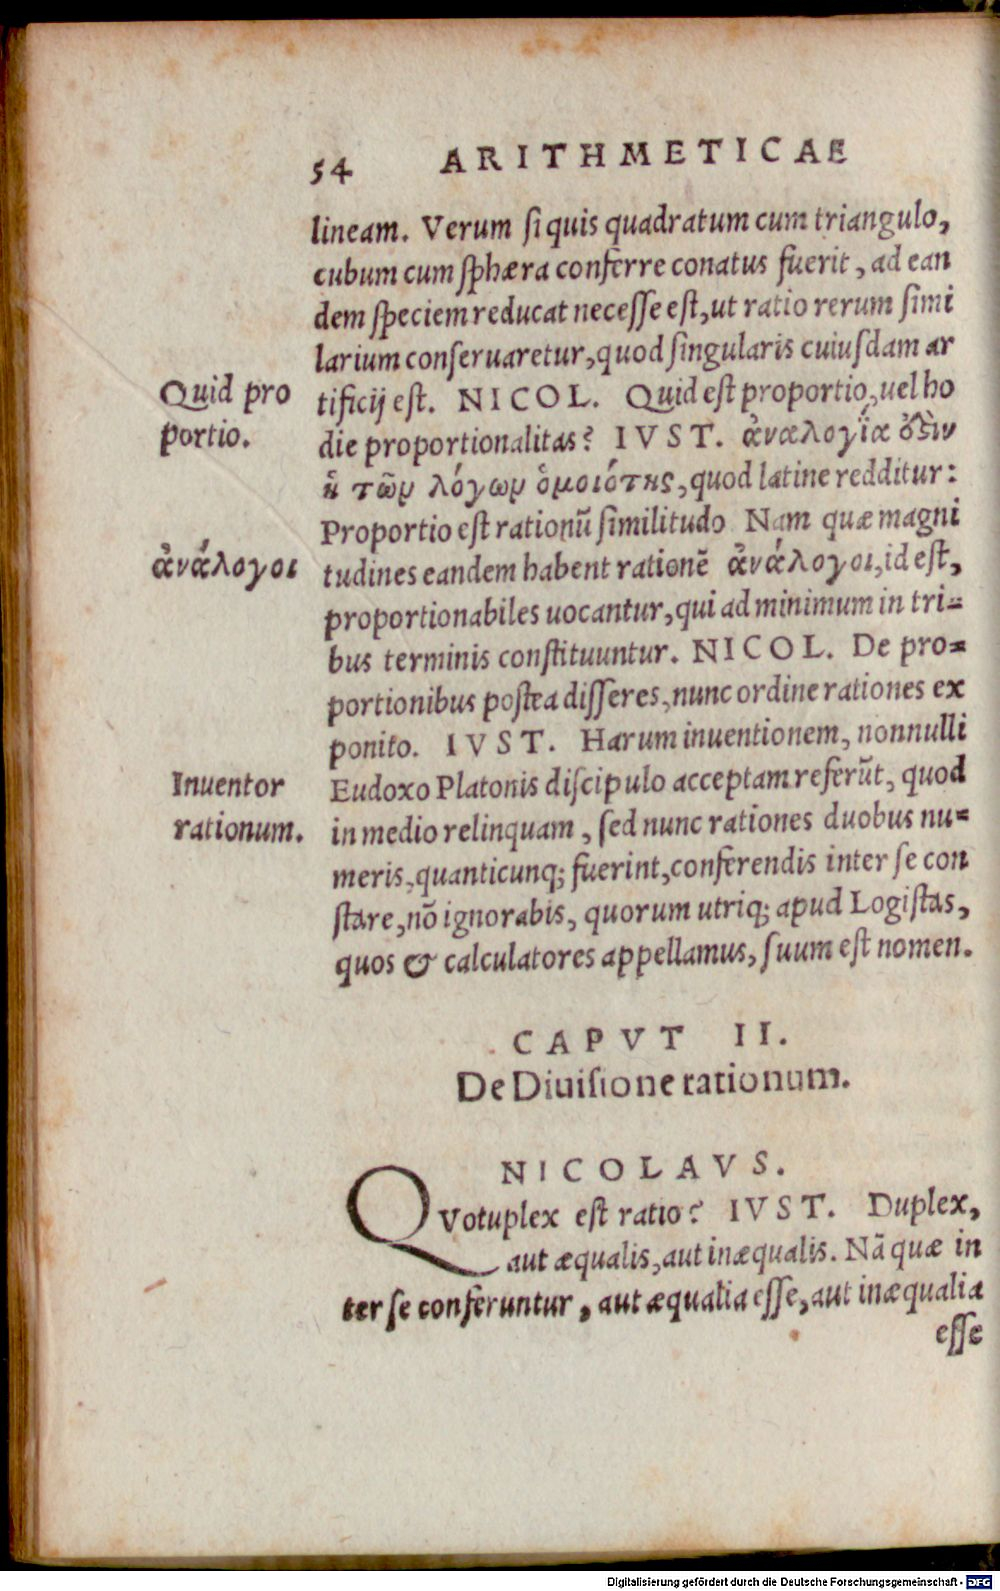 54 ARITHMETICAE
lineam. Verum si quis quadratum cum triangulo,
cubum cum sphæra conferre conatus fuerit, ad ean
dem speciem reducat necesse est, ut ratio rerum simi
larium conseruaretur, quod singularis cuiusdam ar
Quid pro
portio.
tificij est. NICOL. Quid est proportio, uel ho
die proportionalitas? IVST. ἀναλογία ὅξιν
ἡ τῶν λόγων ὁμοιότης, quod latine redditur:
Proportio est rationũ similitudo Nam quæ magni
ἀνάλογοι
tudines eandem habent rationẽ ἀνάλογοι, id est,
proportionabiles uocantur, qui ad minimum in tri-
bus terminis constituuntur. NICOL. De pro-
portionibus postea disseres, nunc ordine rationes ex
ponito. IVST. Harum inuentionem, nonnulli
Inuentor
rationum.
Eudoxo Platonis discipulo acceptam referũt, quod
in medio relinquam, sed nunc rationes duobus nu-
meris, quanticunq; fuerint, conferendis inter se con
stare, nõ ignorabis, quorum utriq; apud Logistas,
quos & calculatores appellamus, suum est nomen.
CAPVT II.
De Diuisione rationum.
NICOLAVS.
QVotuplex est ratio? IVST. Duplex,
aut æqualis, aut inæqualis. Nã quæ in
ter se conferuntur, aut æqualia esse, aut inæqualia
esse
Digitalisierung gefördert durch die Deutsche Forschungsgemeinschaft - DFG